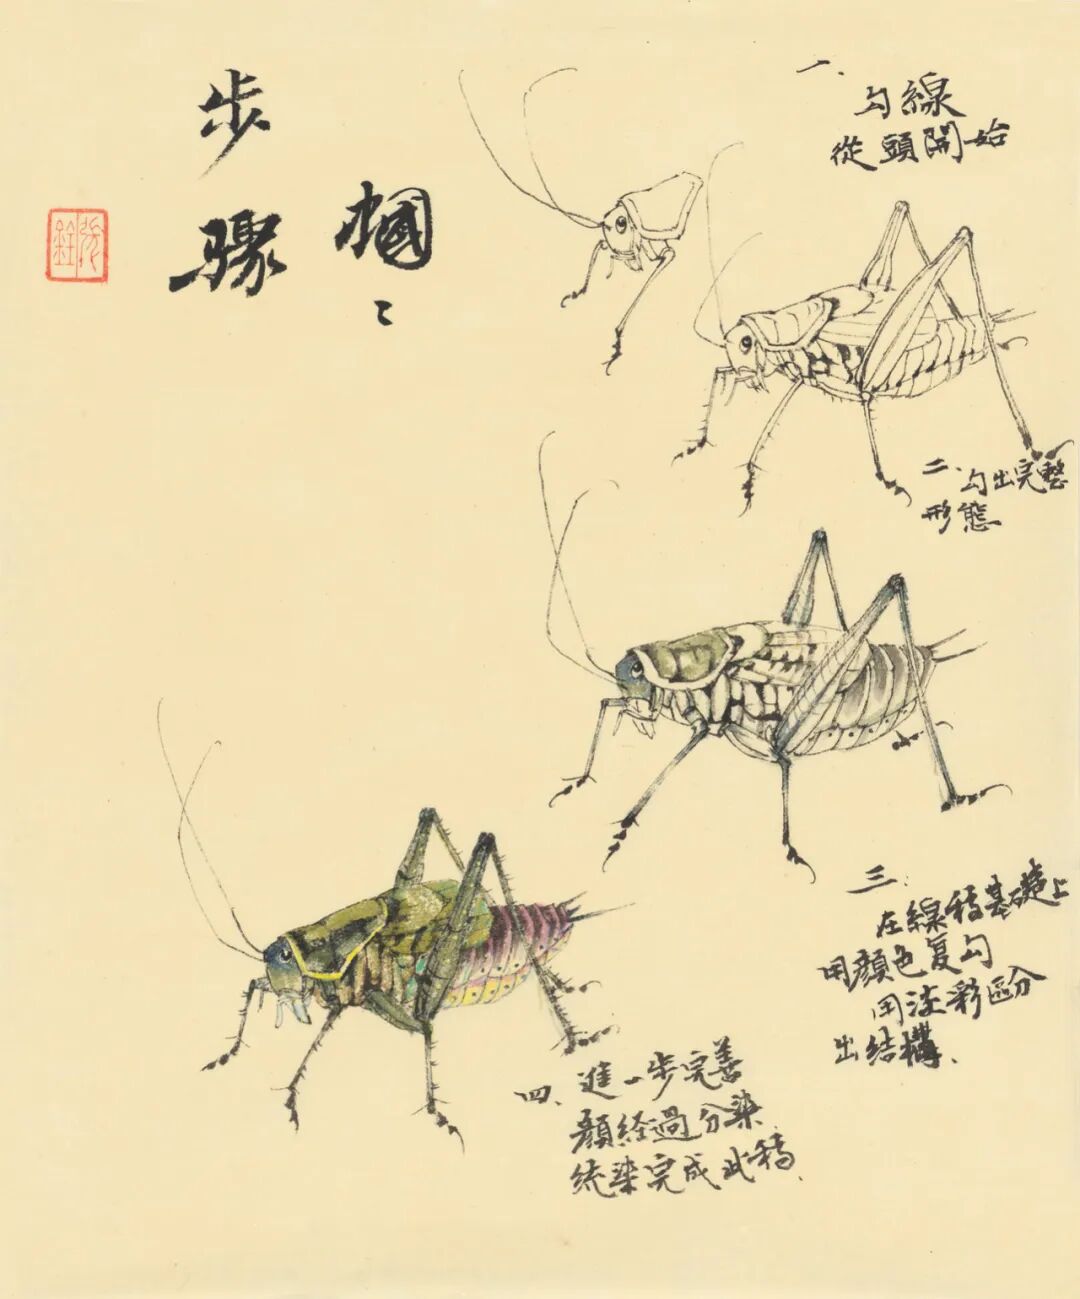 蟈々
步驟
一、
勾線
從頭開始
二、勾出完整
形態
三、
在線稿基礎上
用顏色复勾
用淡彩區分
出结構、
四、進一步完善
顏経過分染
统染完成此稿、